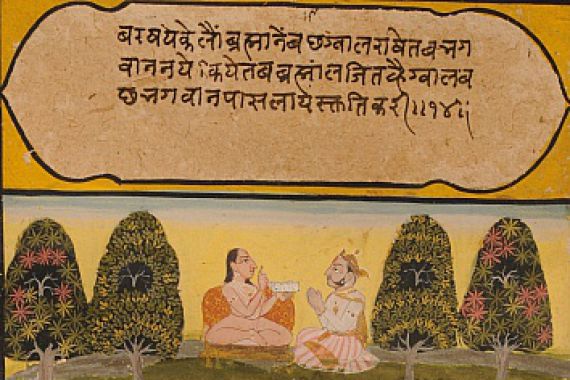 बरषयेकलौंब्रह्मानेंबछग्वालराषेतबभग
वाननयेकियेतबब्रह्मांलजितह्वैग्वालब
छभगवानपासलायेस्तुतिकरी।।१४।।